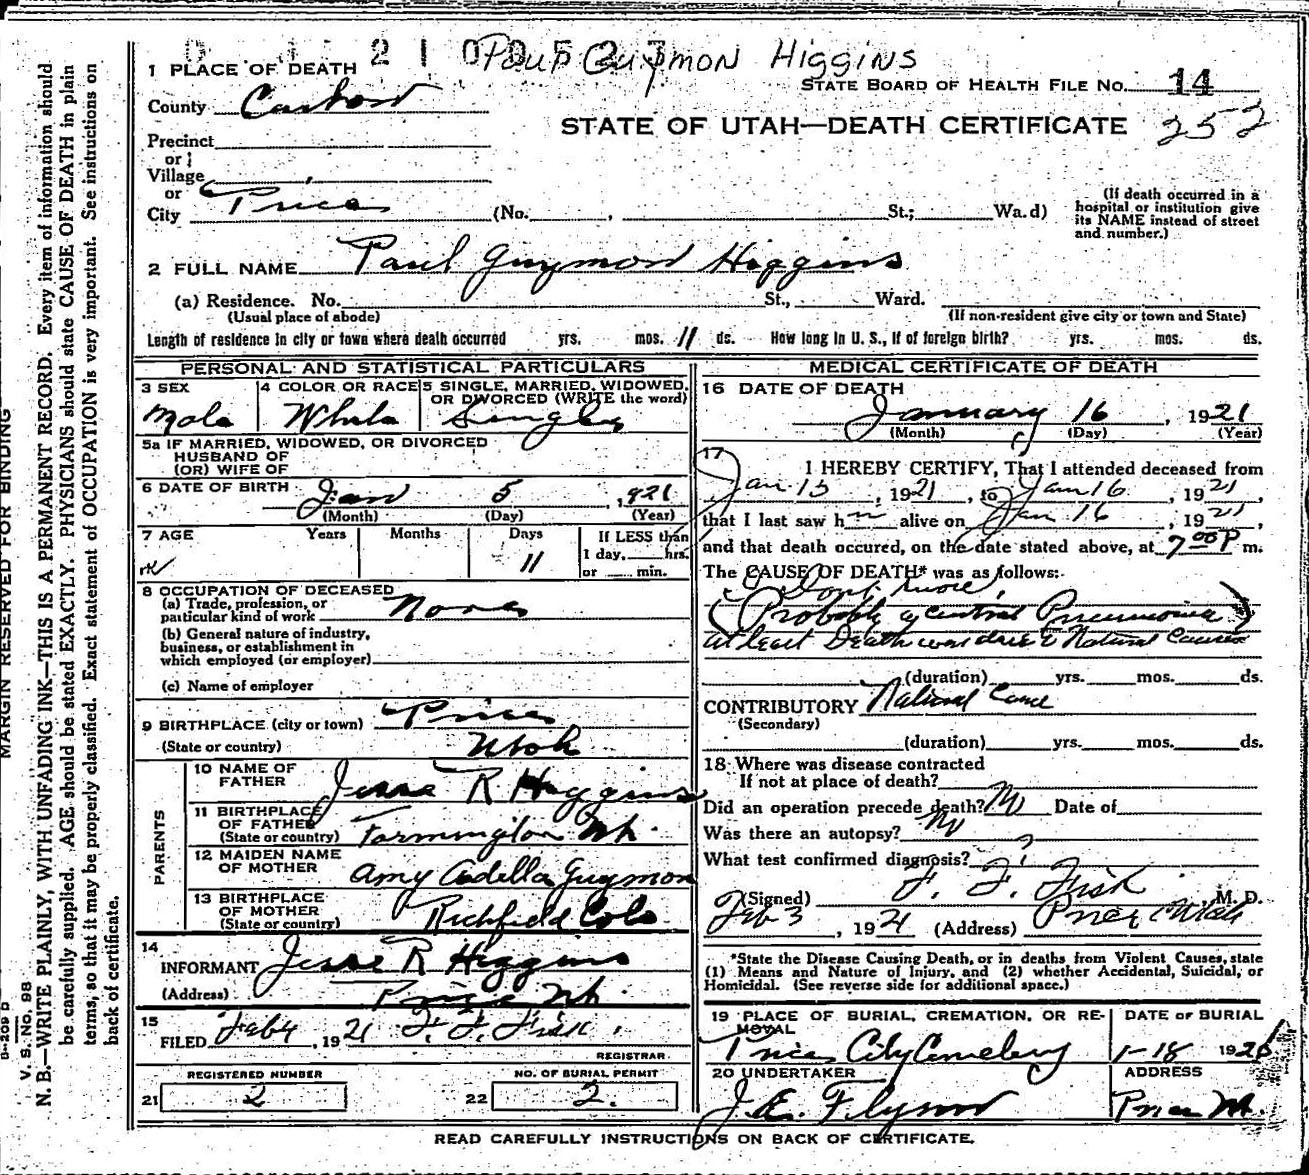 Paul Guymon Higgins
1 PLACE OF DEATH
STATE BOARD OF HEALTH FILE NO. 14
County Carbon
STATE OF UTAH—DEATH CERTIFICATE 252
Precinct
or
Village
or
City Price (No. , St.; Wa.d)
(If death occurred in a hospital or institution give its NAME instead of street and number.)
2 FULL NAME Paul Guymon Higgins
(a) Residence. No. St., Ward.
(Usual place of abode) (If non-resident give city or town and State)
Length of residence in city or town where death occurred yrs. mos. 11 ds. How long in U. S., if of foreign birth? yrs. mos. ds.
PERSONAL AND STATISTICAL PARTICULARS
3 SEX 4 COLOR OR RACE 5 SINGLE, MARRIED, WIDOWED, OR DIVORCED (WRITE the word)
Male White Single
5a IF MARRIED, WIDOWED, OR DIVORCED
HUSBAND OF
(OR) WIFE OF
6 DATE OF BIRTH Jan 5, 1921
(Month) (Day) (Year)
7 AGE Years Months Days If LESS than
1 day, hrs.
11 or min.
8 OCCUPATION OF DECEASED
(a) Trade, profession, or
particular kind of work None
(b) General nature of industry,
business, or establishment in
which employed (or employer)
(c) Name of employer
9 BIRTHPLACE (city or town) Price
(State or country) Utah
PARENTS
10 NAME OF
FATHER Jesse R Higgins
11 BIRTHPLACE
OF FATHER
(State or country) Farmington Ut.
12 MAIDEN NAME
OF MOTHER Amy Adella Guymon
13 BIRTHPLACE
OF MOTHER
(State or country) Richfield Colo
14
INFORMANT Jesse R Higgins
(Address) Price Ut.
15
FILED Feb 4, 1921 F. F. Fisk.
REGISTRAR
REGISTERED NUMBER NO. OF BURIAL PERMIT
21 2 22 2.
MEDICAL CERTIFICATE OF DEATH
16 DATE OF DEATH
January 16, 1921
(Month) (Day) (Year)
17
I HEREBY CERTIFY, That I attended deceased from
Jan 15, 1921, to Jan 16, 1921,
that I last saw h m alive on Jan 16, 1921,
and that death occured, on the date stated above, at 7 00 P m.
The CAUSE OF DEATH* was as follows:
Dont know,
(Probably a central Pneumonia)
at least Death was due to Natural Causes
(duration) yrs. mos. ds.
CONTRIBUTORY Natural Cause
(Secondary)
(duration) yrs. mos. ds.
18 Where was disease contracted
If not at place of death?
Did an operation precede death? No Date of
Was there an autopsy? No
What test confirmed diagnosis? ?
(Signed) F. F. Fisk M. D.
Feb 3, 1921 (Address) Price Utah
*State the Disease Causing Death, or in deaths from Violent Causes, state
(1) Means and Nature of Injury, and (2) whether Accidental, Suicidal, or
Homicidal. (See reverse side for additional space.)
19 PLACE OF BURIAL, CREMATION, OR RE- DATE OF BURIAL
MOVAL
Price City Cemetery 1-18 192
20 UNDERTAKER ADDRESS
J. E. Flynn Price Ut.
READ CAREFULLY INSTRUCTIONS ON BACK OF CERTIFICATE.
MARGIN RESERVED FOR BINDING
V. S. NO. 98
N. B.—WRITE PLAINLY, WITH UNFADING INK—THIS IS A PERMANENT RECORD. Every item of information should
be carefully supplied. AGE should be stated EXACTLY. PHYSICIANS should state CAUSE OF DEATH in plain
terms, so that it may be properly classified. Exact statement of OCCUPATION is very important. See instructions on
back of certificate.